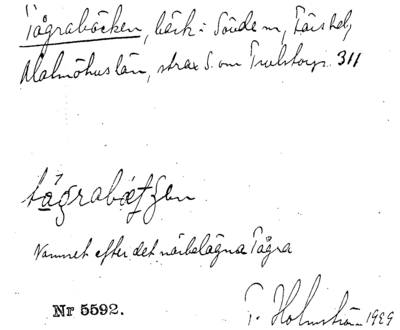 Tågrabäcken, bäck i Södde m, Färs hd,
Malmöhus län, strax S. om Trulstorp 311
tågrabætʃen
Namnet efter det närbelägna Tågra
Nr 5592.
T. Holmström 1929